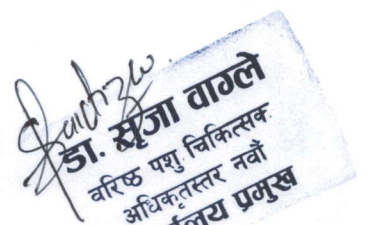 डा. सृजा वाग्ले
वरिष्ठ पशु चिकित्सक
अधिकृतस्तर नवौं
प्रमुख